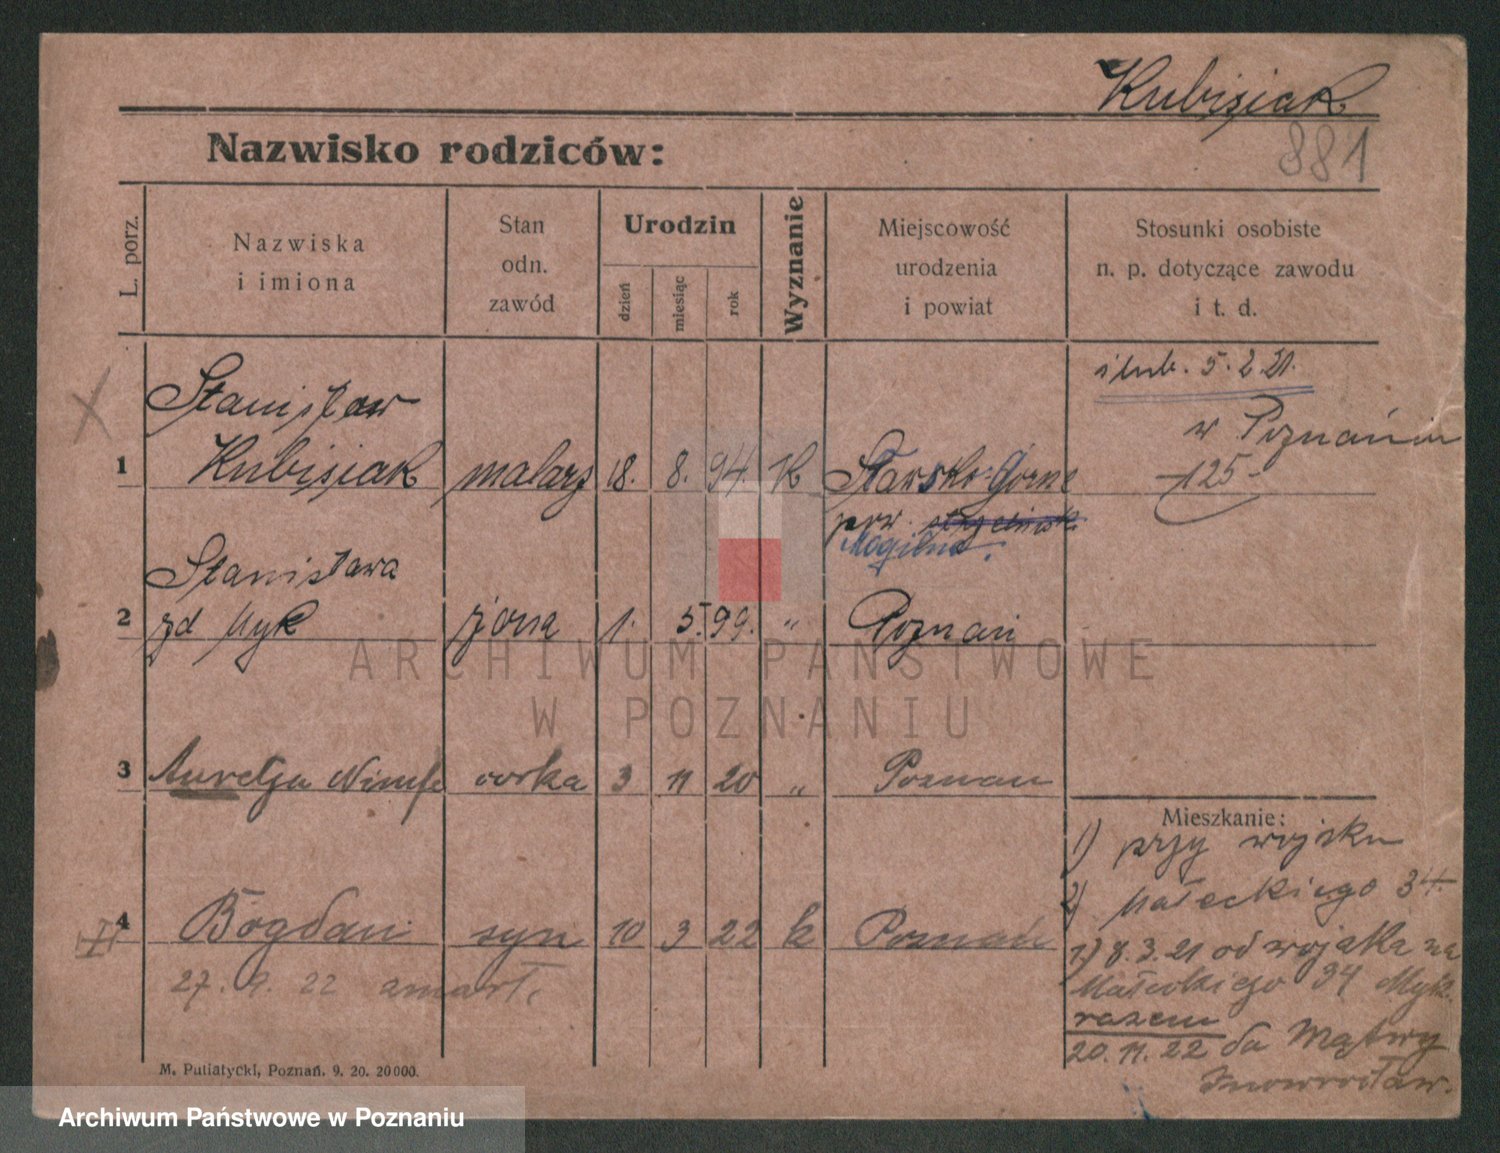 Kubisiak
881
Nazwisko rodziców:
L. porz.
Nazwiska
i imiona
Stan
odn.
zawód
Urodzin
dzień
miesiąc
rok
Wyznanie
Miejscowość
urodzenia
i powiat
Stosunki osobiste
n. p. dotyczące zawodu
i t. d.
ślub. 5.2.21.
w Poznaniu
-125-
Stanisław
1 Kubisiak malarz 18. 8. 94. K
pow.
Mogilno.
Stanisława
2 zd Myk żona 1. 5. 99. " Poznań
ARCHIWUM PAŃSTWOWE
W POZNANIU
3 córka 3 11 20 " Poznań
4 Bogdan syn 10 3 22 k Poznań
27. 9. 22 zmarł.
Mieszkanie:
1) przy wojsku
2) Małeckiego 34.
8.3.21 od wojska na
Małeckiego 34 Myk.
razem
20. 11. 22 do Mątwy
Inowrocław.
M. Putiatycki, Poznań. 9. 20. 20000.
Archiwum Państwowe w Poznaniu